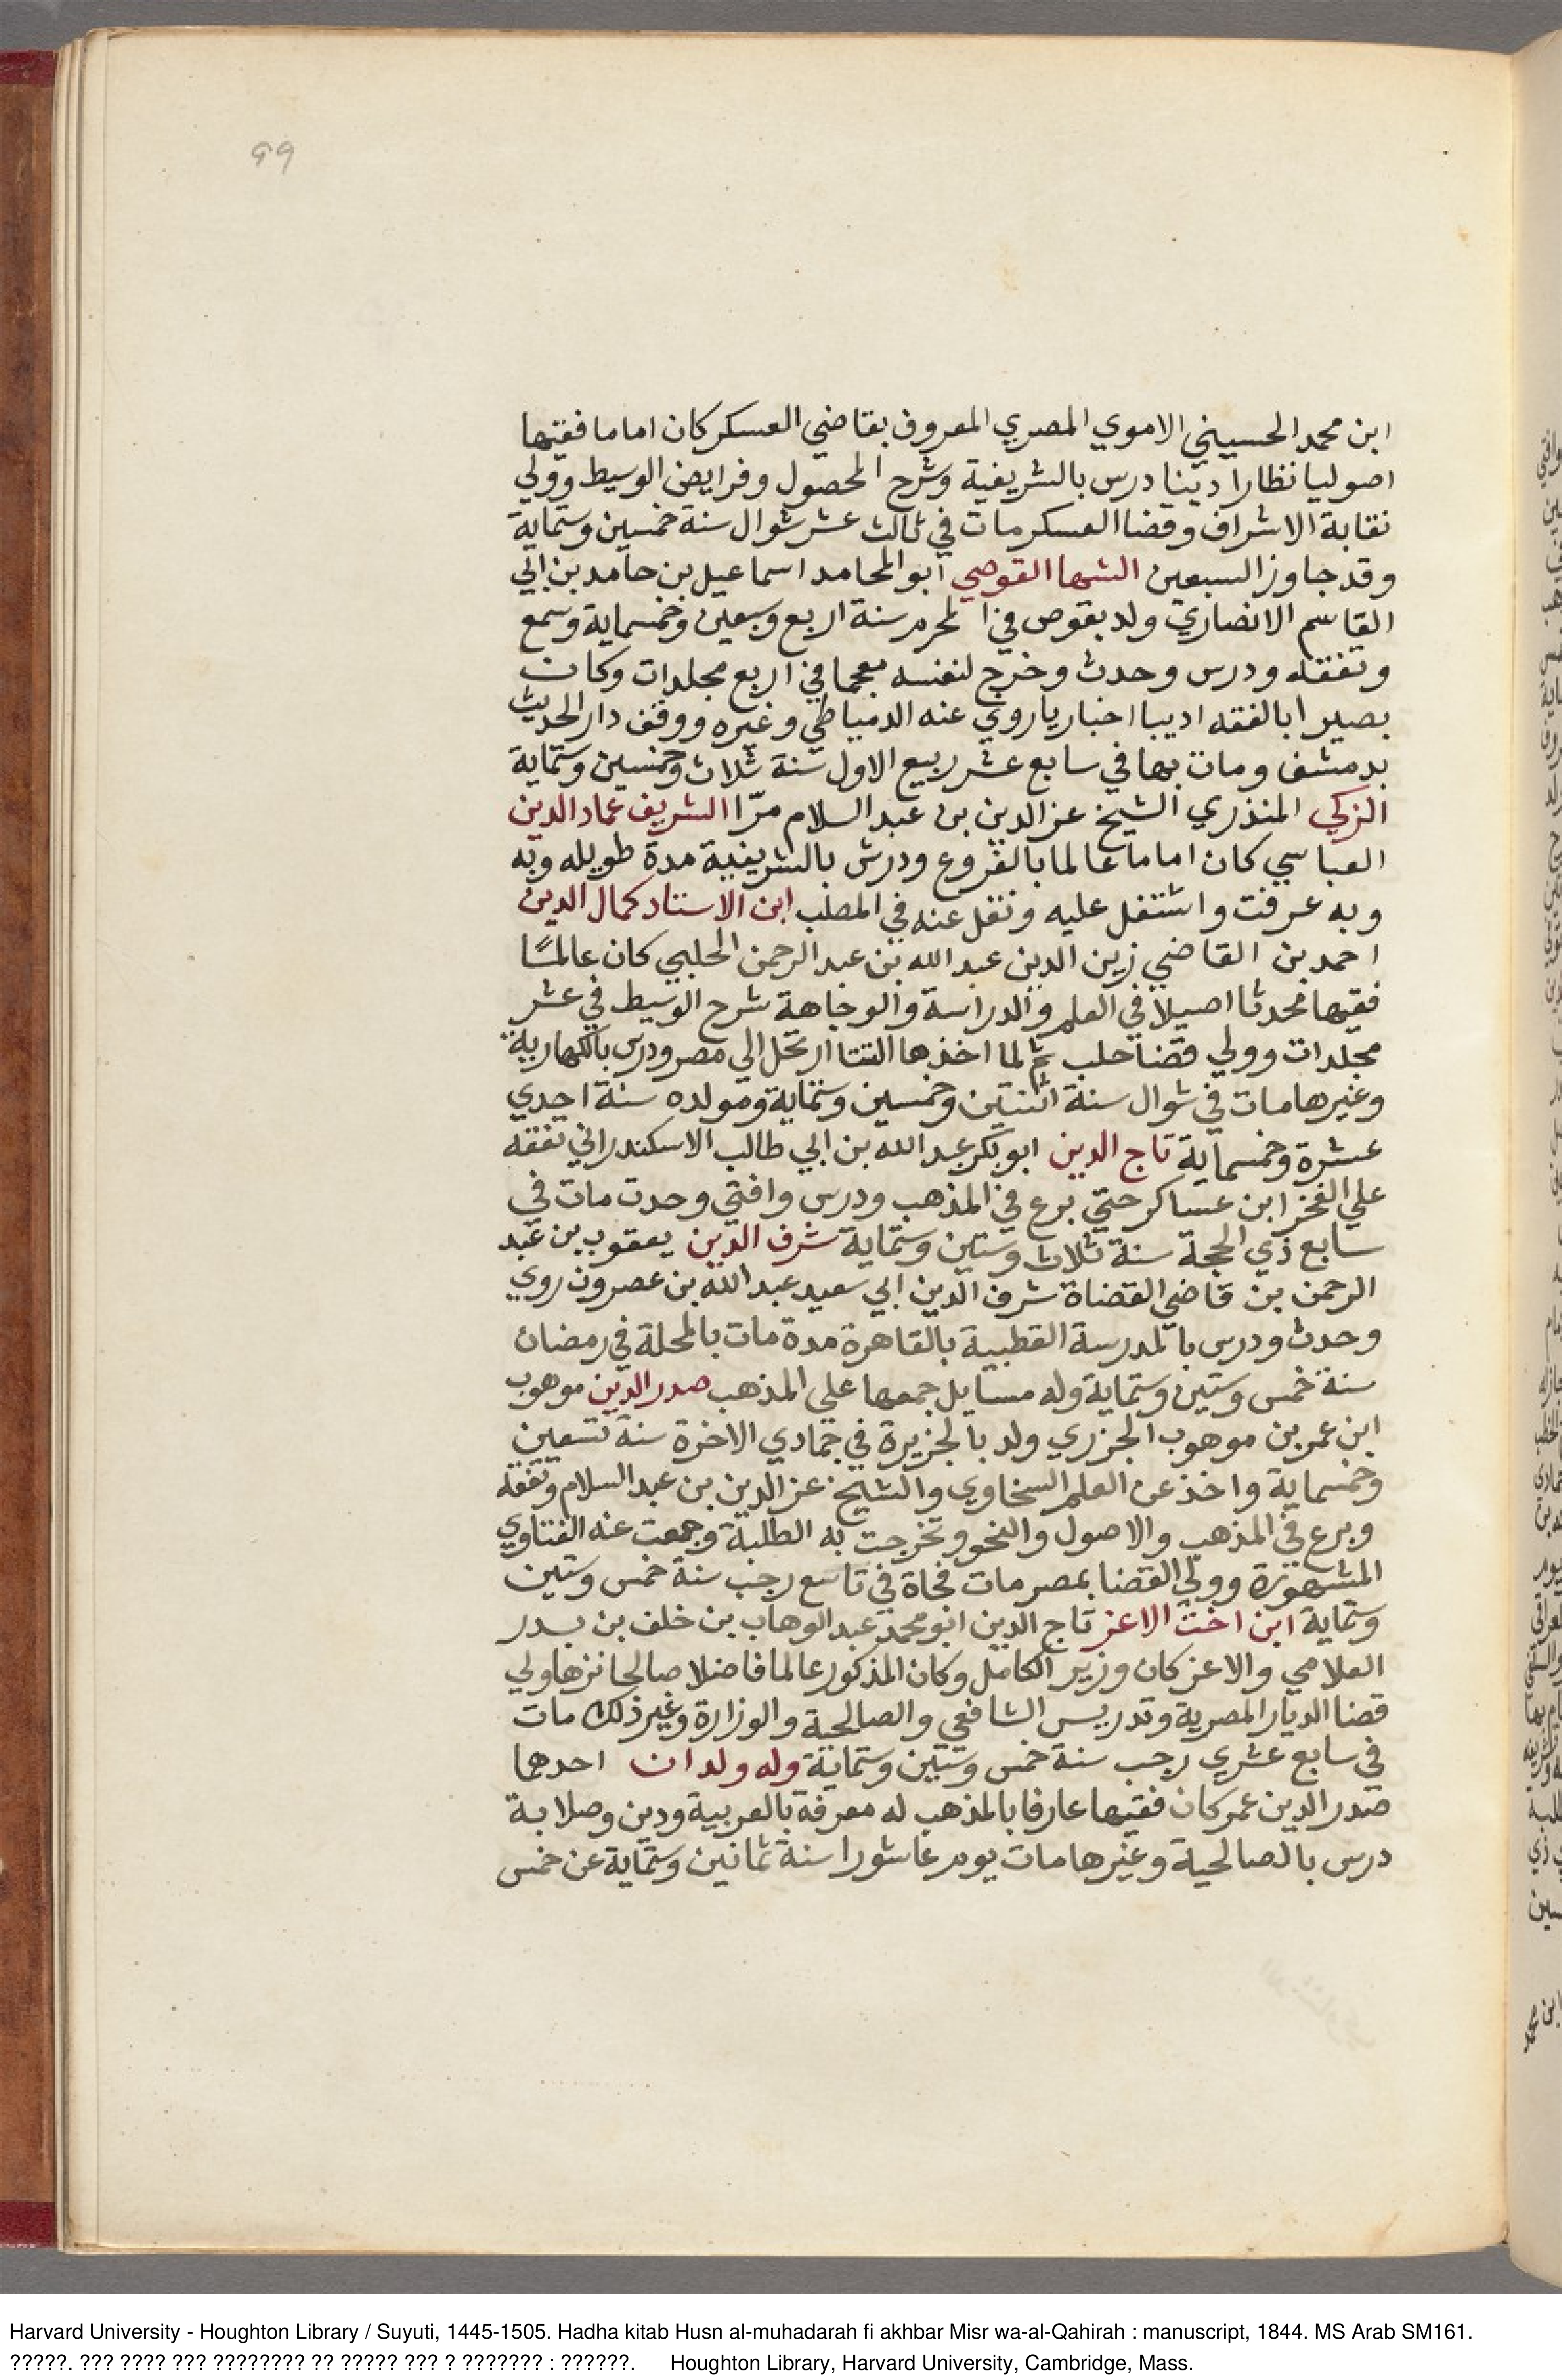 99
ابن محمد الحسيني الاموي المصري المعروف بقاضي العسكر كان اماما فقيها
اصوليا نظارا دينا درس بالشريفية وشرح المحصول وفرايض الوسيط وولي
نقابة الاشراف وقضا العسكر مات في ثالث عشر شوال سنة خمسين وستماية
وقد جاوز السبعين الشها القوصي ابو المحامد اسماعيل بن حامد بن ابي
القاسم الانصاري ولد بقوص في المحرم سنة اربع وسبعين وخمسماية وسمع
وتفقه ودرس وحدث وخرج لنفسه معجما في اربع مجلدات وكان
بصيرا بالفقه اديبا اخباريا روي عنه الدمياطي وغيره ووقف دار الحديث
بدمشف ومات بها في سابع عشر ربيع الاول سنة ثلاث وخمسين وستماية
الزكي المنذري الشيخ عز الدين بن عبد السلام مرّا الشريف عماد الدين
العباسي كان اماما عالما بالفروع ودرش بالشريفية مدة طويله وبه
وبه عرفت واشتغل عليه ونقل عنه في المطلب ابن الاستاد كمال الدين
احمد بن القاضي زين الدين عبد الله بن عبد الرحمن الحلبي كان عالمًا
فقيها محدثا اصيلا في العلم والدراسة والوجاهة شرح الوسيط في عشر
مجلدات وولي قضا حلب ثم لما اخذها التتا ارتحل الي مصر ودرس بالكهارية
وغيرها مات في شوال سنة اثنتين وخمسين وستماية ومولده سنة احدي
عشرة وخمسماية تاج الدين ابو بكر عبد الله بن ابي طالب الاسكندراني تفقه
علي الفخر ابن عساكر حتي برع في المذهب ودرس وافتي وحدث مات في
سابع ذي الحجة سنة ثلاث وستين وستماية شرف الدين يعقوب بن عبد
الرحمن بن قاضي القضاة شرف الدين ابي سعيد عبد الله بن عصرون روي
وحدث ودرس بالمدرسة القطبية بالقاهرة مدة مات بالمحلة في رمضان
سنة خمس وستين وستماية وله مسايل جمعها علي المذهب صدر الدين موهوب
ابن عمر بن موهوب الجزري ولد بالجزيرة في جمادي الاخرة سنة تسعين
وخمسماية واخذ عن العلم السخاوي والشيخ عز الدين بن عبد السلام وتفقه
وبرع في المذهب والاصول والنحو وتخرجت به الطلبة وجمعت عنه الفتاوي
المشهورة وولي القضا بمصر مات فجاة في تاسع رجب سنة خمس وستين
وستماية ابن اخت الاعز تاج الدين ابو محمد عبد الوهاب بن خلف بن بدر
العلامي والاعز كان وزير الكامل وكان المذكور عالما فاضلا صالحا نزها ولي
قضا الديار المصرية وتدريس الشافعي والصالحية والوزارة وغير ذلك مات
في سابع عشري رجب سنة خمس وستين وستماية وله ولدان احدهما
صدر الدين عمر كان فقيها عارفا بالمذهب له معرفة بالعربية ودين وصلابة
درس بالصالحية وغيرها مات يوم عاشورا سنة ثمانين وستماية عن خمس
Harvard University - Houghton Library / Suyuti, 1445-1505. Hadha kitab Husn al-muhadarah fi akhbar Misr wa-al-Qahirah : manuscript, 1844. MS Arab SM161.
?????. ??? ???? ??? ???????? ?? ????? ??? ? ??????? : ??????. Houghton Library, Harvard University, Cambridge, Mass.